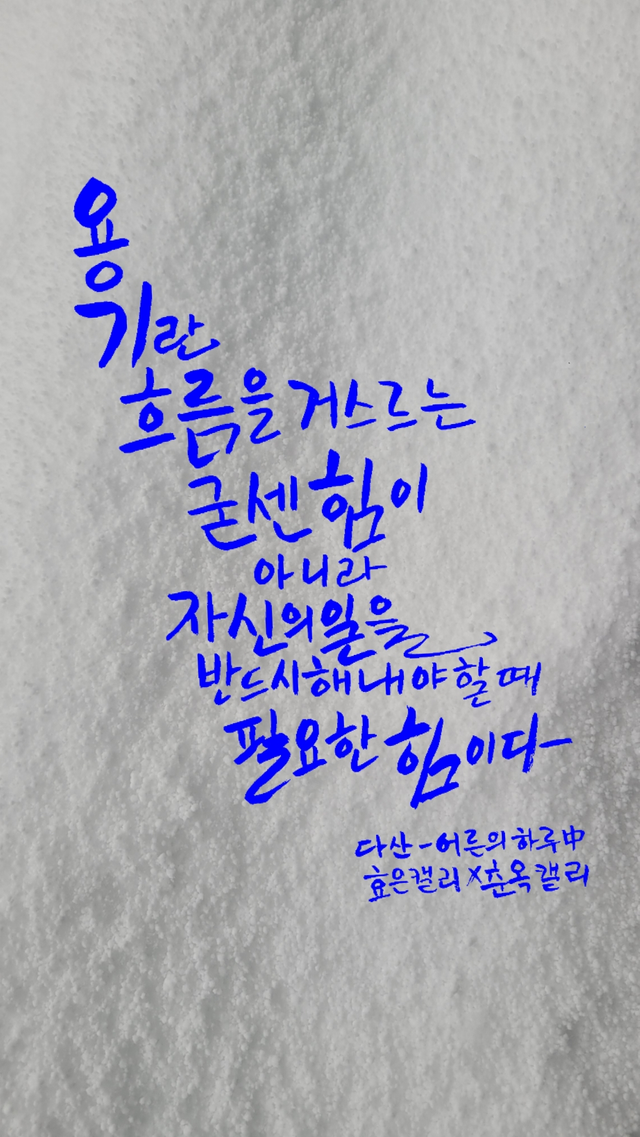 용
기란
흐름을 거스르는
굳센 힘이
아니라
자신의 일을
반드시 해내야 할 때
필요한 힘이다
다산-어른의 하루中
효은캘리×춘옥캘리